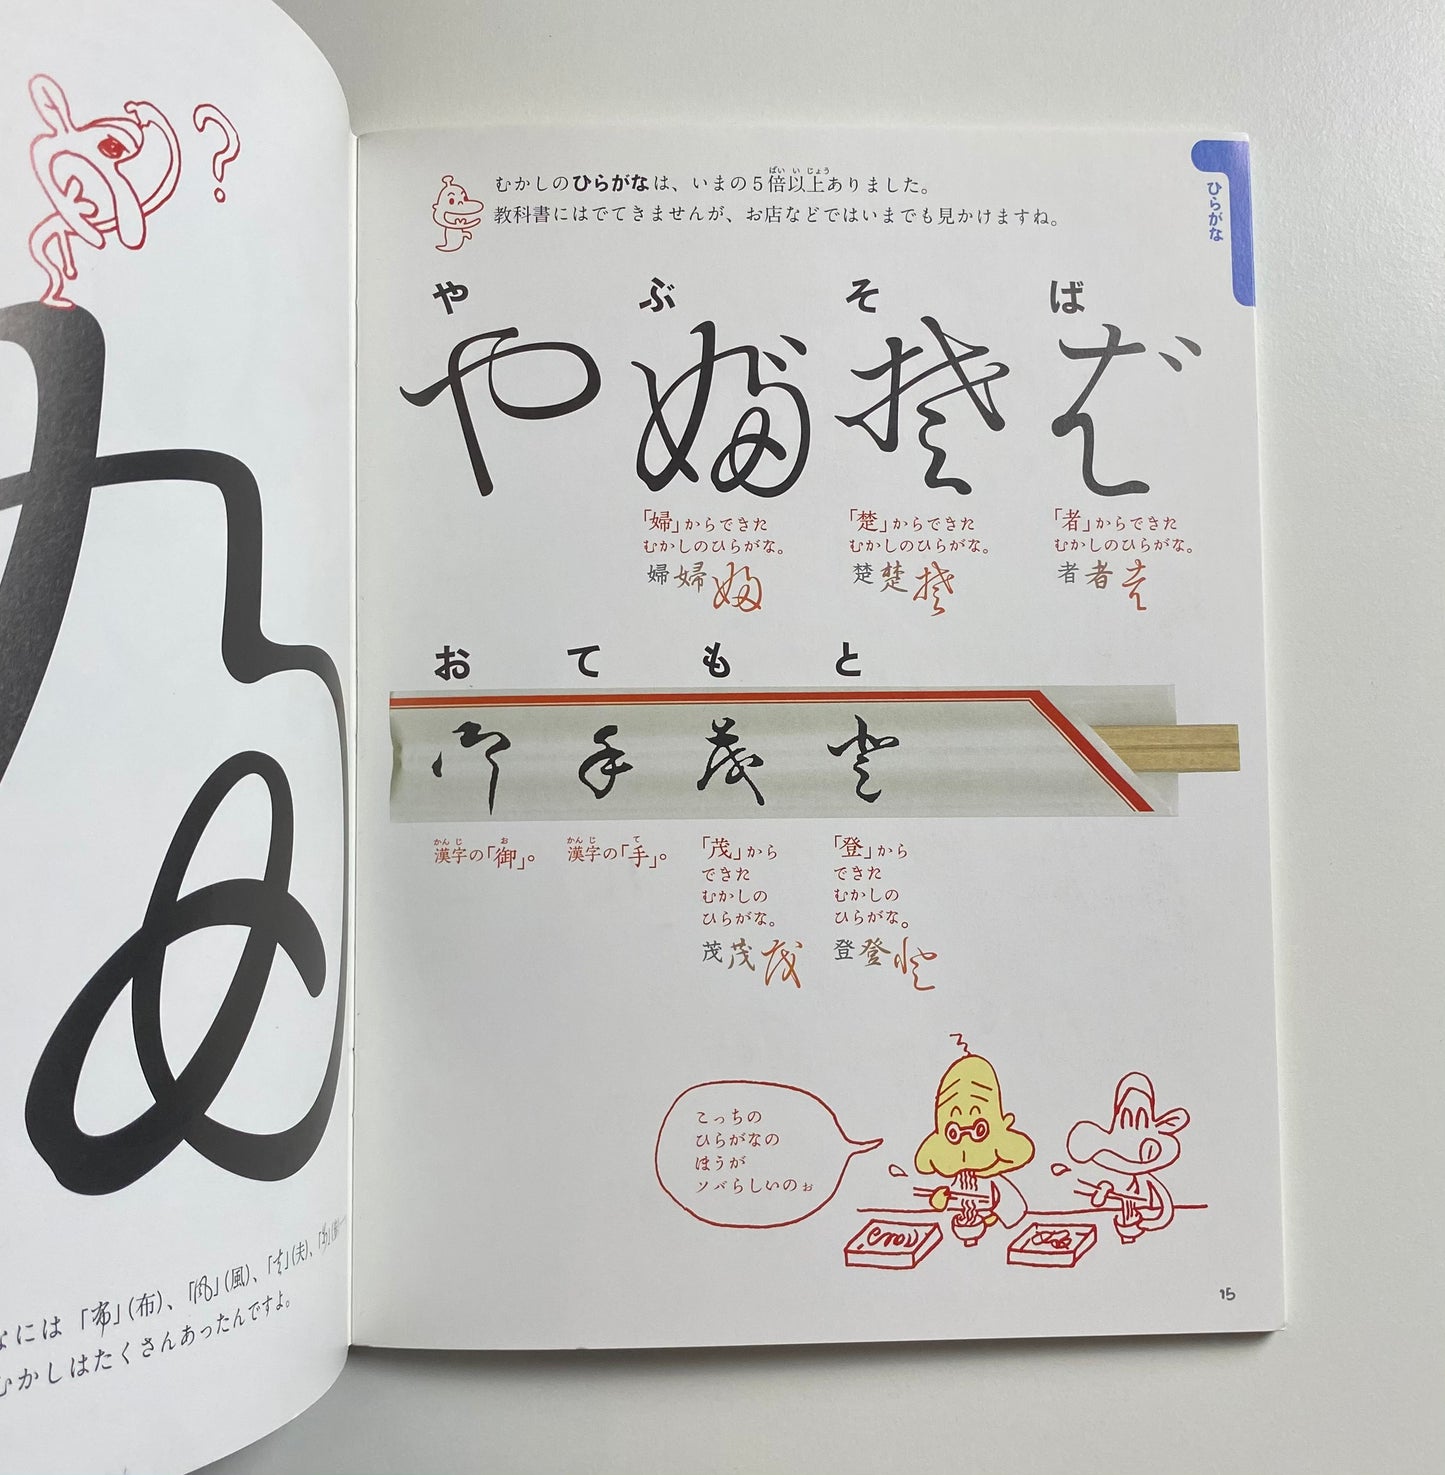 むかしのひらがなは、いまの5倍以上ありました。
教科書にはでてきませんが、お店などではいまでも見かけますね。
ひらがな
や ぶ そ ば
「婦」からできた
むかしのひらがな。
婦婦
「楚」からできた
むかしのひらがな。
楚楚
「者」からできた
むかしのひらがな。
者者
お て も と
御手茂登
漢字の「御」。
漢字の「手」。
「茂」から
できた
むかしの
ひらがな。
茂茂
「登」から
できた
むかしの
ひらがな。
登登
こっちの
ひらがなの
ほうが
ソバらしいのぉ
15
なには「布」(布)、「風」(風)、「夫」(夫)、
むかしはたくさんあったんですよ。